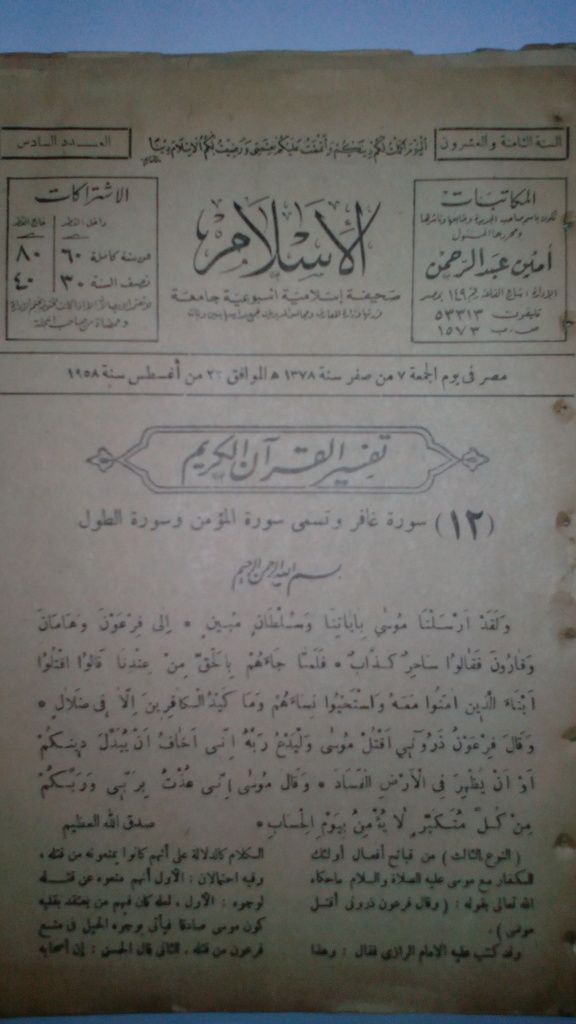 السنة الثامنة والعشرون
اليوم أكملت لكم دينكم وأتممت عليكم نعمتى ورضيت لكم الإسلام دينا
العـــدد السادس
المكاتبات
تكون باسم صاحب الجريدة وطابعها وناشرها
ومحررها المسئول
أمين عبد الرحمن
الإدارة: شارع القلعة رقم ١٤٩ بمصر
تليفون ٥٣٣١٣
ص. ب ١٥٧٣
الإسلام
صحيفة إسلامية أسبوعية جامعة
الاشتراكات
داخل القطر
خارج القطر
عن سنة كاملة ٦٠ ٨٠
نصف السنة ٣٠ ٤٠
مصر فى يوم الجمعة ٧ من صفر سنة ١٣٧٨ ه الموافق ٢٢ من أغسطس سنة ١٩٥٨
تفسير القرآن الكريم
(١٢) سورة غافر وتسمى سورة المؤمن وسورة الطول
بسم الله الرحمن الرحيم
وَلَقَدْ اَرْسَلْنَا مُوسٰى بِاٰيَاتِنَا وَسُلْطَانٍ مُبِينٍ * اِلٰى فِرْعَوْنَ وَهَامَانَ
وَقَارُونَ فَقَالُوا سَاحِرٌ كَذَّابٌ * فَلَمَّا جَاءَهُمْ بِالْحَقِّ مِنْ عِنْدِنَا قَالُوا اقْتُلُوا
اَبْنَاءَ الَّذِينَ اٰمَنُوا مَعَهُ وَاسْتَحْيُوا نِسَاءَهُمْ وَمَا كَيْدُ الْكَافِرِينَ اِلَّا فِى ضَلَالٍ *
وَقَالَ فِرْعَوْنُ ذَرُونِى اَقْتُلْ مُوسٰى وَلْيَدْعُ رَبَّهُ اِنِّى اَخَافُ اَنْ يُبَدِّلَ دِينَكُمْ
اَوْ اَنْ يُظْهِرَ فِى الْاَرْضِ الْفَسَادَ * وَقَالَ مُوسٰى اِنِّى عُذْتُ بِرَبِّى وَرَبِّكُمْ
مِنْ كُلِّ مُتَكَبِّرٍ لَا يُؤْمِنُ بِيَوْمِ الْحِسَابِ * صدق الله العظيم
(النوع الثالث) من قبائح أفعال أولئك
الكفار مع موسى عليه الصلاة والسلام ماحكاه
الله تعالى بقوله : (وقال فرعون ذرونى أقتل
موسى) .
وقد كتب عليه الامام الرازى فقال : وهذا
الكلام كالدلالة على أنهم كانوا يمنعونه من قتله .
وفيه احتمالان : الأول أنهم منعوه عن قتله
لوجوه : الأول ، لعله كان فيهم من يعتقد بقلبه
كون موسى صادقا فيأتى بوجوه الحيل فى منع
فرعون من قتله . الثانى قال الحسن : إن أصحابه